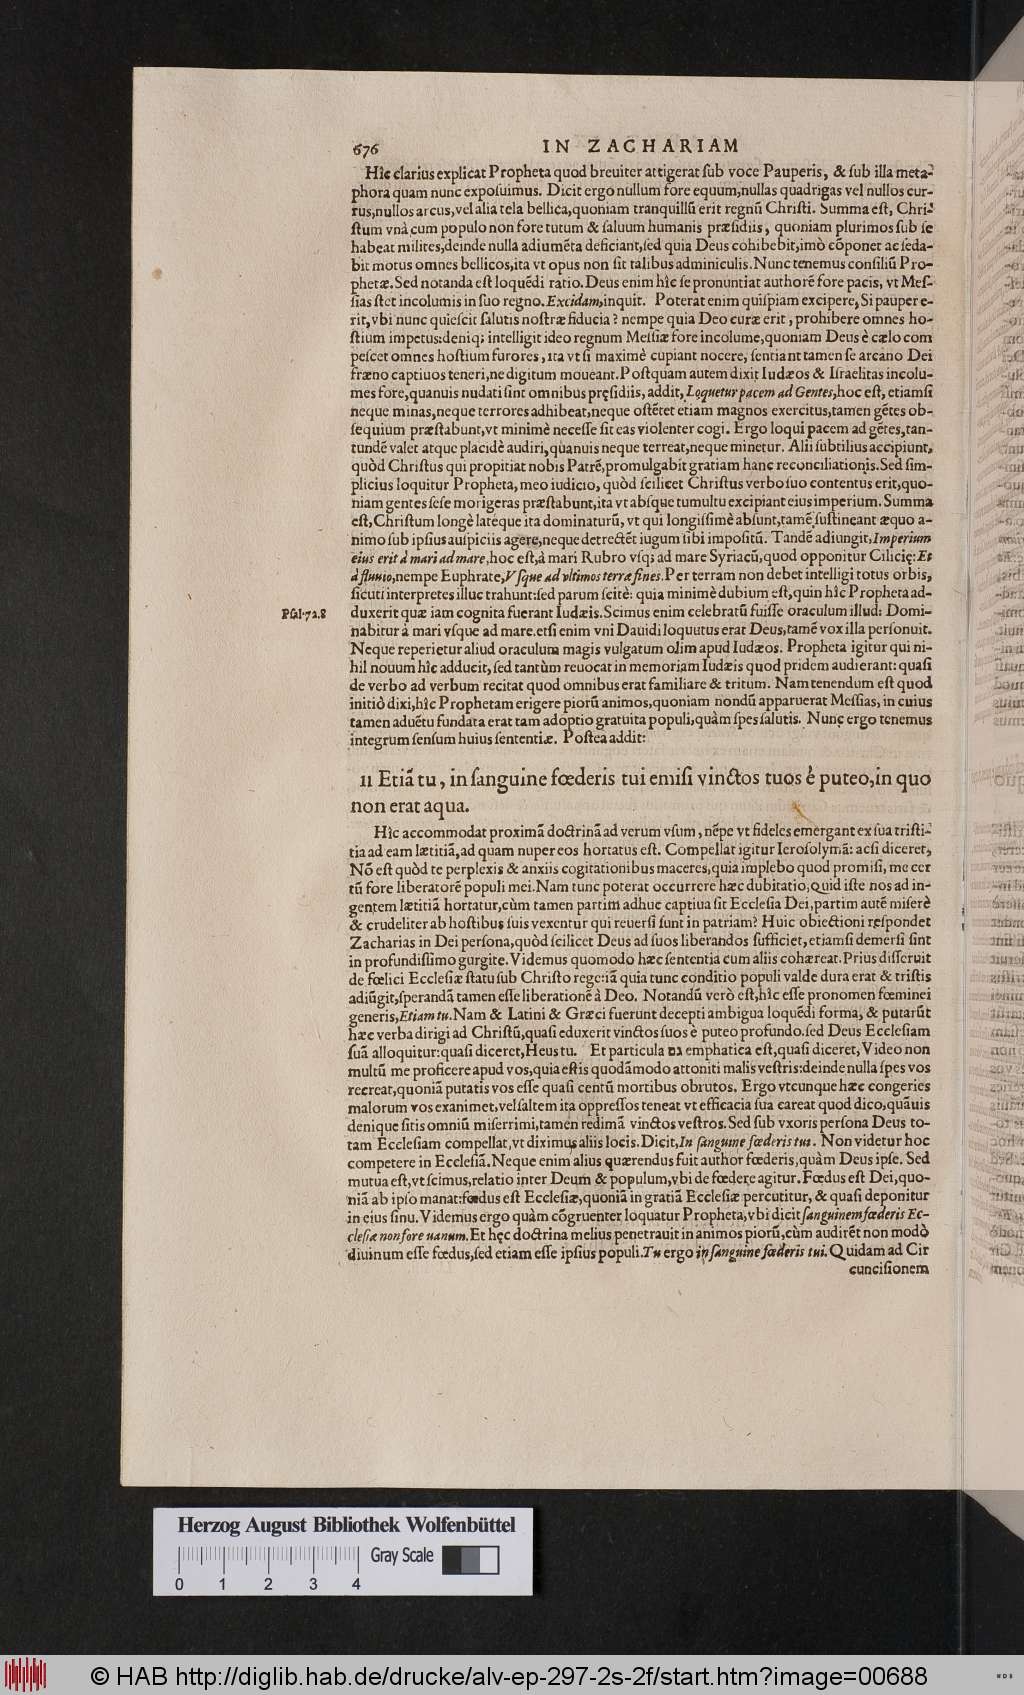 676 IN ZACHARIAM
Hîc clarius explicat Propheta quod breuiter attigerat ſub voce Pauperis, & ſub illa meta-
phora quam nunc expoſuimus. Dicit ergo nullum fore equum, nullas quadrigas vel nullos cur-
rus, nullos arcus, vel alia tela bellica, quoniam tranquillũ erit regnũ Chriſti. Summa eſt, Chri-
ſtum vnà cum populo non fore tutum & ſaluum humanis præſidiis, quoniam plurimos ſub ſe
habeat milites, deinde nulla adiumẽta deficiant, ſed quia Deus cohibebit, imò cõponet ac ſeda-
bit motus omnes bellicos, ita vt opus non ſit talibus adminiculis. Nunc tenemus conſiliũ Pro-
phetæ. Sed notanda eſt loquẽdi ratio. Deus enim hîc ſe pronuntiat authorẽ fore pacis, vt Meſ-
ſias ſtet incolumis in ſuo regno. Excidam, inquit. Poterat enim quiſpiam excipere, Si pauper e-
rit, vbi nunc quieſcit ſalutis noſtræ fiducia? nempe quia Deo curæ erit, prohibere omnes ho-
ſtium impetus: deniq; intelligit ideo regnum Meſsiæ fore incolume, quoniam Deus è cælo com
peſcet omnes hoſtium furores, ita vt ſi maximè cupiant nocere, ſentiant tamen ſe arcano Dei
fræno captiuos teneri, ne digitum moueant. Poſtquam autem dixit Iudæos & Iſraelitas incolu-
mes fore, quanuis nudati ſint omnibus pręſidiis, addit, Loquetur pacem ad Gentes, hoc eſt, etiamſi
neque minas, neque terrores adhibeat, neque oſtẽtet etiam magnos exercitus, tamen gẽtes ob-
ſequium præſtabunt, vt minimè neceſſe ſit eas violenter cogi. Ergo loqui pacem ad gẽtes, tan-
tundẽ valet atque placidè audiri, quanuis neque terreat, neque minetur. Alii ſubtilius accipiunt,
quòd Chriſtus qui propitiat nobis Patrẽ, promulgabit gratiam hanc reconciliationis. Sed ſim-
plicius loquitur Propheta, meo iudicio, quòd ſcilicet Chriſtus verbo ſuo contentus erit, quo-
niam gentes ſeſe morigeras præſtabunt, ita vt abſque tumultu excipiant eius imperium. Summa
eſt, Chriſtum longè lateque ita dominaturũ, vt qui longiſſimè abſunt, tamẽ ſuſtineant æquo a-
nimo ſub ipſius auſpiciis agere, neque detrectẽt iugum ſibi impoſitũ. Tandẽ adiungit, Imperium
eius erit à mari ad mare, hoc eſt, à mari Rubro vſq; ad mare Syriacũ, quod opponitur Cilicię: Et
à fluuio, nempe Euphrate, Vſque ad vltimos terræ fines. Per terram non debet intelligi totus orbis,
ſicuti interpretes illuc trahunt: ſed parum ſcitè: quia minimè dubium eſt, quin hîc Propheta ad-
Pſal. 72.8 duxerit quæ iam cognita fuerant Iudæis. Scimus enim celebratũ fuiſſe oraculum illud: Domi-
nabitur à mari vſque ad mare. etſi enim vni Dauidi loquutus erat Deus, tamẽ vox illa perſonuit.
Neque reperietur aliud oraculum magis vulgatum olim apud Iudæos. Propheta igitur qui ni-
hil nouum hîc adducit, ſed tantùm reuocat in memoriam Iudæis quod pridem audierant: quaſi
de verbo ad verbum recitat quod omnibus erat familiare & tritum. Nam tenendum eſt quod
initiò dixi, hîc Prophetam erigere piorũ animos, quoniam nondũ apparuerat Meſſias, in cuius
tamen aduẽtu fundata erat tam adoptio gratuita populi, quàm ſpes ſalutis. Nunc ergo tenemus
integrum ſenſum huius ſententiæ. Poſtea addit:
11 Etiã tu, in ſanguine fœderis tui emiſi vinctos tuos è puteo, in quo
non erat aqua.
Hîc accommodat proximã doctrinã ad verum vſum, nẽpe vt fideles emergant ex ſua triſti-
tia ad eam lætitiã, ad quam nuper eos hortatus eſt. Compellat igitur Ieroſolymã: acſi diceret,
Nõ eſt quòd te perplexis & anxiis cogitationibus maceres, quia implebo quod promiſi, me cer
tũ fore liberatorẽ populi mei. Nam tunc poterat occurrere hæc dubitatio, Quid iſte nos ad in-
gentem lætitiã hortatur, cùm tamen partim adhuc captiua ſit Eccleſia Dei, partim autẽ miſerè
& crudeliter ab hoſtibus ſuis vexentur qui reuerſi ſunt in patriam? Huic obiectioni reſpondet
Zacharias in Dei perſona, quòd ſcilicet Deus ad ſuos liberandos ſufficiet, etiamſi demerſi ſint
in profundiſſimo gurgite. Videmus quomodo hæc ſententia cum aliis cohæreat. Prius diſſeruit
de fœlici Eccleſiæ ſtatu ſub Chriſto regẽ: iã quia tunc conditio populi valde dura erat & triſtis
adiũgit, ſperandã tamen eſſe liberationẽ à Deo. Notandũ verò eſt, hîc eſſe pronomen fœminei
generis, Etiam tu. Nam & Latini & Græci fuerunt decepti ambigua loquẽdi forma, & putarũt
hæc verba dirigi ad Chriſtũ, quaſi eduxerit vinctos ſuos è puteo profundo. ſed Deus Eccleſiam
ſuã alloquitur: quaſi diceret, Heus tu. Et particula גם emphatica eſt, quaſi diceret, Video non
multũ me proficere apud vos, quia eſtis quodãmodo attoniti malis veſtris: deinde nulla ſpes vos
recreat, quoniã putatis vos eſſe quaſi centũ mortibus obrutos. Ergo vtcunque hæc congeries
malorum vos exanimet, vel ſaltem ita oppreſſos teneat vt efficacia ſua careat quod dico, quãuis
denique ſitis omniũ miſerrimi, tamen redimã vinctos veſtros. Sed ſub vxoris perſona Deus to-
tam Eccleſiam compellat, vt diximus aliis locis. Dicit, In ſanguine fœderis tui. Non videtur hoc
competere in Eccleſiã. Neque enim alius quærendus fuit author fœderis, quàm Deus ipſe. Sed
mutua eſt, vt ſcimus, relatio inter Deum & populum, vbi de fœdere agitur. Fœdus eſt Dei, quo-
niã ab ipſo manat: fœdus eſt Eccleſiæ, quoniã in gratiã Eccleſiæ percutitur, & quaſi deponitur
in eius ſinu. Videmus ergo quàm cõgruenter loquatur Propheta, vbi dicit ſanguinem fœderis Ec-
cleſiæ non fore uanum. Et hęc doctrina melius penetrauit in animos piorũ, cùm audirẽt non modò
diuinum eſſe fœdus, ſed etiam eſſe ipſius populi. Tu ergo in ſanguine fœderis tui. Quidam ad Cir
cunciſionem
Herzog August Bibliothek Wolfenbüttel
Gray Scale
0 1 2 3 4
© HAB http://diglib.hab.de/drucke/alv-ep-297-2s-2f/start.htm?image=00688